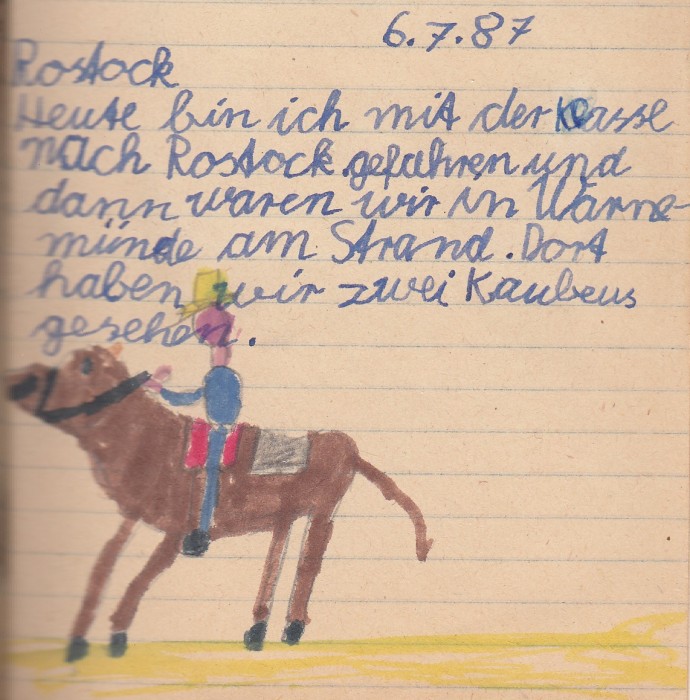 6.7.87
Rostock
Heute bin ich mit der Kasse
nach Rostock gefahren und
dann waren wir in Warne-
münde am Strand. Dort
haben wir zwei Kaubeus
gesehen.